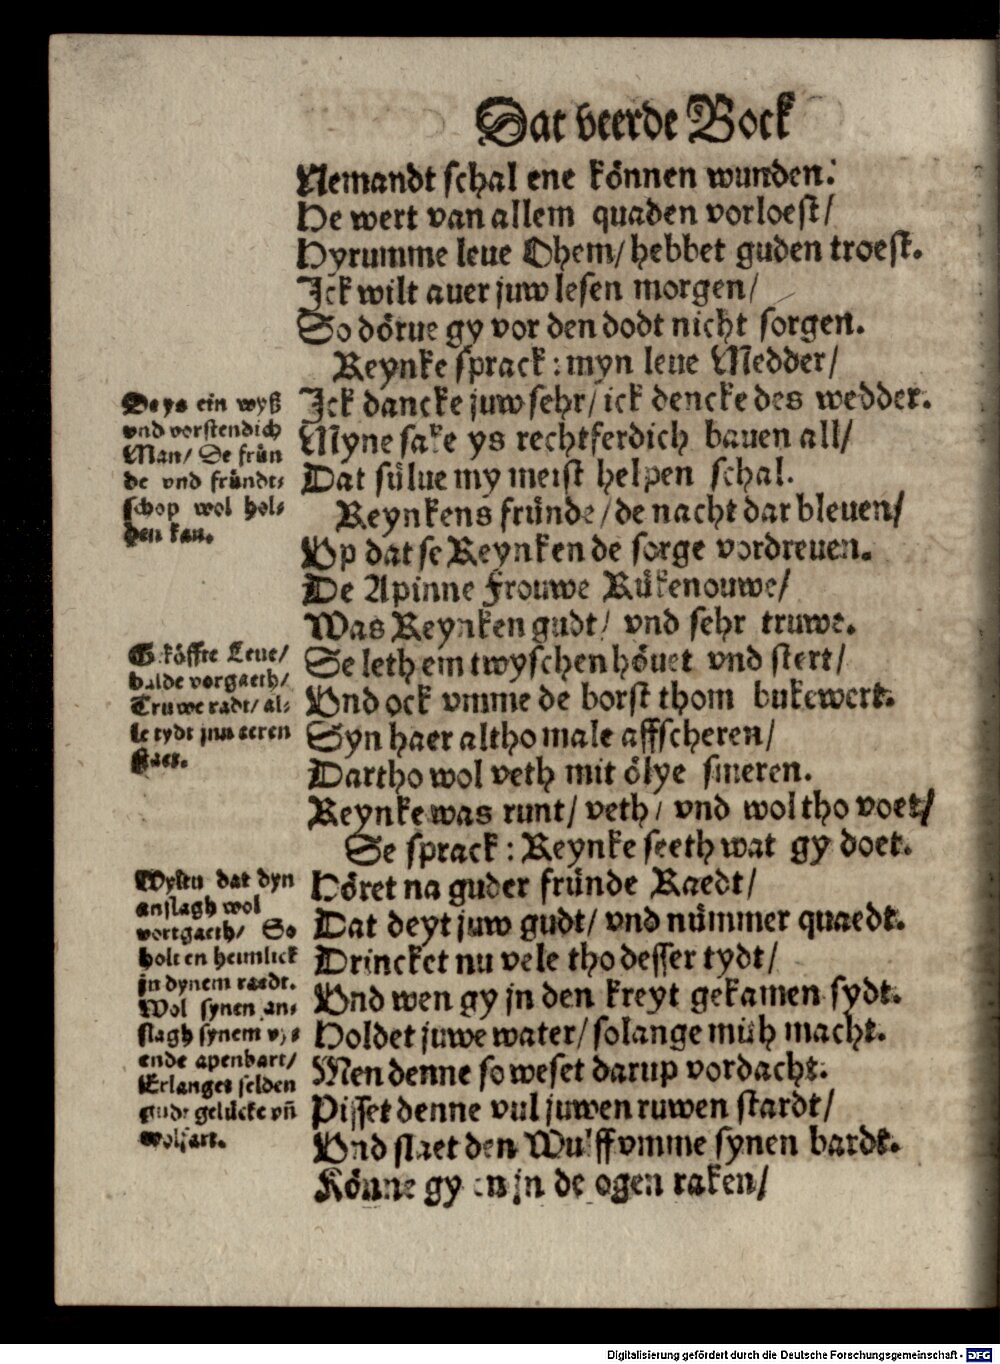 Dat veerde Bock
Nemandt schal ene können wunden:
He wert van allem quaden vorloest/
Hyrumme leue Ohem/ hebbet guden troest.
Ick wilt auer juw lesen morgen/
So dörue gy vor den dodt nicht sorgen.
Reynke sprack: myn leue Medder/
Ick dancke juw sehr/ ick dencke des wedder.
Myne sake ys rechtferdich bauen all/
Dat sülue my meist helpen schal.
Reynkens fründe/ de nacht dar bleuen/
Vp dat se Reynken de sorge vordreuen.
De Apinne Frouwe Rükenouwe/
Was Reynken gudt/ vnd sehr truwe.
Se leth em twyschen höuet vnd stert/
Vnd ock vmme de borst thom bukewert.
Syn haer altho male affscheren/
Dartho wol veth mit ölye smeren.
Reynke was runt/ veth/ vnd wol tho voet/
Se sprack: Reynke seeth wat gy doet.
Höret na guder fründe Raedt/
Dat deyt juw gudt/ vnd nümmer quaedt.
Drincket nu vele tho desser tydt/
Vnd wen gy jn den kreyt gekamen sydt.
Holdet juwe water/ solange müh macht.
Men denne so weset darup vordacht.
Pisset denne vul juwen ruwen stardt/
Vnd slaet den Wulff vmme synen bardt.
Könne gy en jn de ogen raken/
De ys ein wyß
vnd vorstendich
Man/ De frün
de vnd fründt-
schop wol hol-
den kan.
Geköffte Leue/
balde vorgaeth/
Truwe radt/ al-
le tydt jnn eeren
staet.
Wyltu dat dyn
anslagh wol
vortgaeth/ So
holt en heimlick
jn dynem raedt.
Wol synen an-
slagh synem vy-
ende apenbart/
Erlanget selden
gudt gelücke vñ
wolfart.
Digitalisierung gefördert durch die Deutsche Forschungsgemeinschaft - DFG